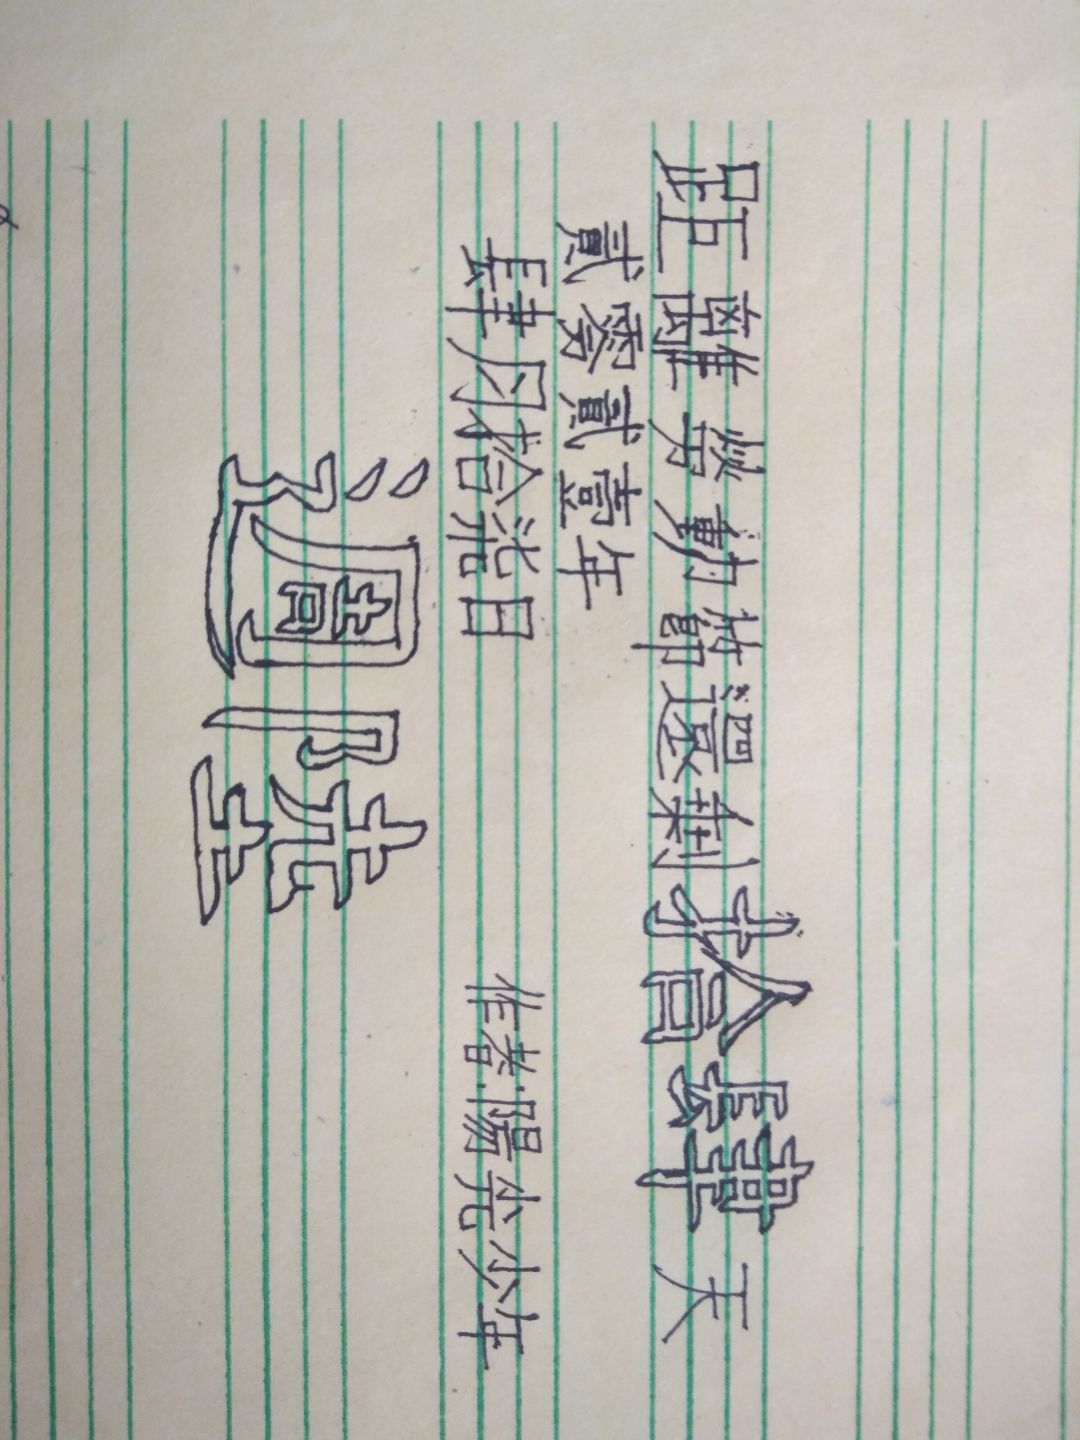 距離勞動節還剩拾肆天
貳零貳壹年
肆月拾柒日 作者:陽光少年
週陸